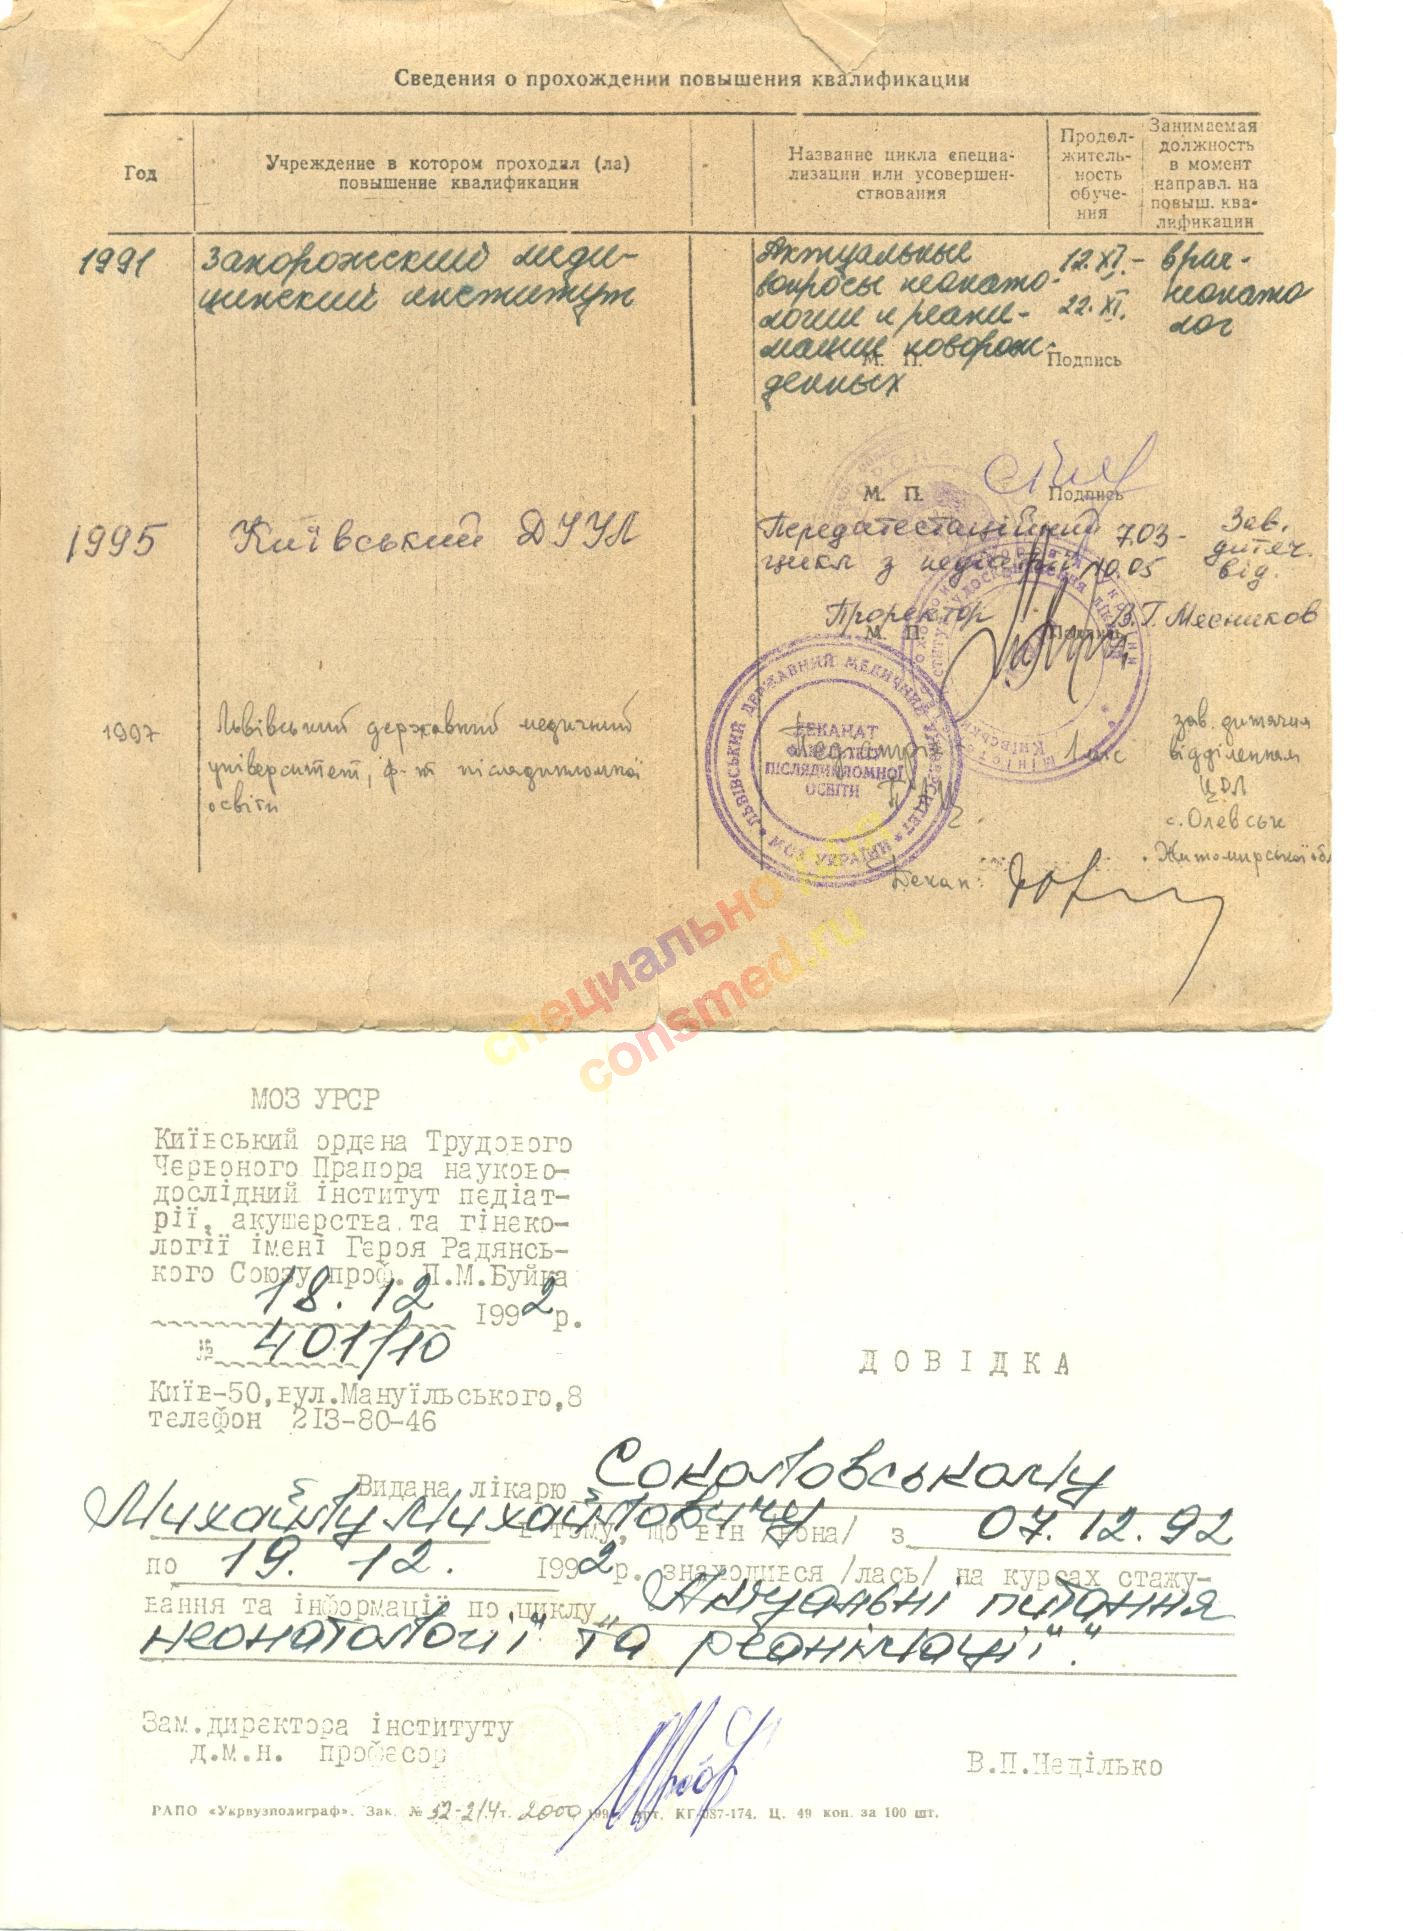 Сведения о прохождении повышения квалификации
Год
Учреждение в котором проходил (ла)
повышение квалификации
Название цикла специа-
лизации или усовершен-
ствования
Продол-
житель-
ность
обуче-
ния
Занимаемая
должность
в момент
направл. на
повыш. ква-
лификации
1991
Запорожский меди-
цинский институт
Актуальные
вопросы неонато-
логии и реани-
мации новорож-
денных
12.XI.-
22.XI.
врач-
неонато
лог
М. П.
Подпись
М. П.
Подпись
1995
Київський ДІУЛ
Передатестаційний
цикл з педіатрії
7.03-
10.05
Зав.
дитяч.
від.
Проректор
В.Г. Мясников
М. П.
Подпись
1997
Львівський державний медичний
університет, ф-т післядипломної
освіти
1 міс
зав. дитячим
відділенням
ЦРЛ
с. Олевськ
Житомирської обл
ЛЬВІВСЬКИЙ ДЕРЖАВНИЙ МЕДИЧНИЙ УНІВЕРСИТЕТ
МОЗ УКРАЇНИ
ДЕКАНАТ
ФАКУЛЬТЕТУ
ПІСЛЯДИПЛОМНОЇ
ОСВІТИ
Декан:
специально для
consmed.ru
МОЗ УРСР
Київський ордена Трудового
Червоного Прапора науково-
дослідний інститут педіат-
рії, акушерства та гінеко-
логії імені Героя Радянсь-
кого Союзу проф. П.М.Буйка
18.12 1992р.
№ 401/10
Київ-50,вул.Мануїльського,8
телефон 213-80-46
ДОВІДКА
Видана лікарю Соколовському
Михайлу Михайловичу в тому, що він /вона/ з 07.12.92
по 19.12. 1992р. знаходився /лась/ на курсах стажу-
вання та інформації по циклу "Актуальні питання
неонатології" та реанімації".
Зам.директора інституту
д.м.н. професор
В.П.Неділько
РАПО «Укрвузполиграф». Зак. № 52-214 т. 2000 КГ-087-174. Ц. 49 коп. за 100 шт.